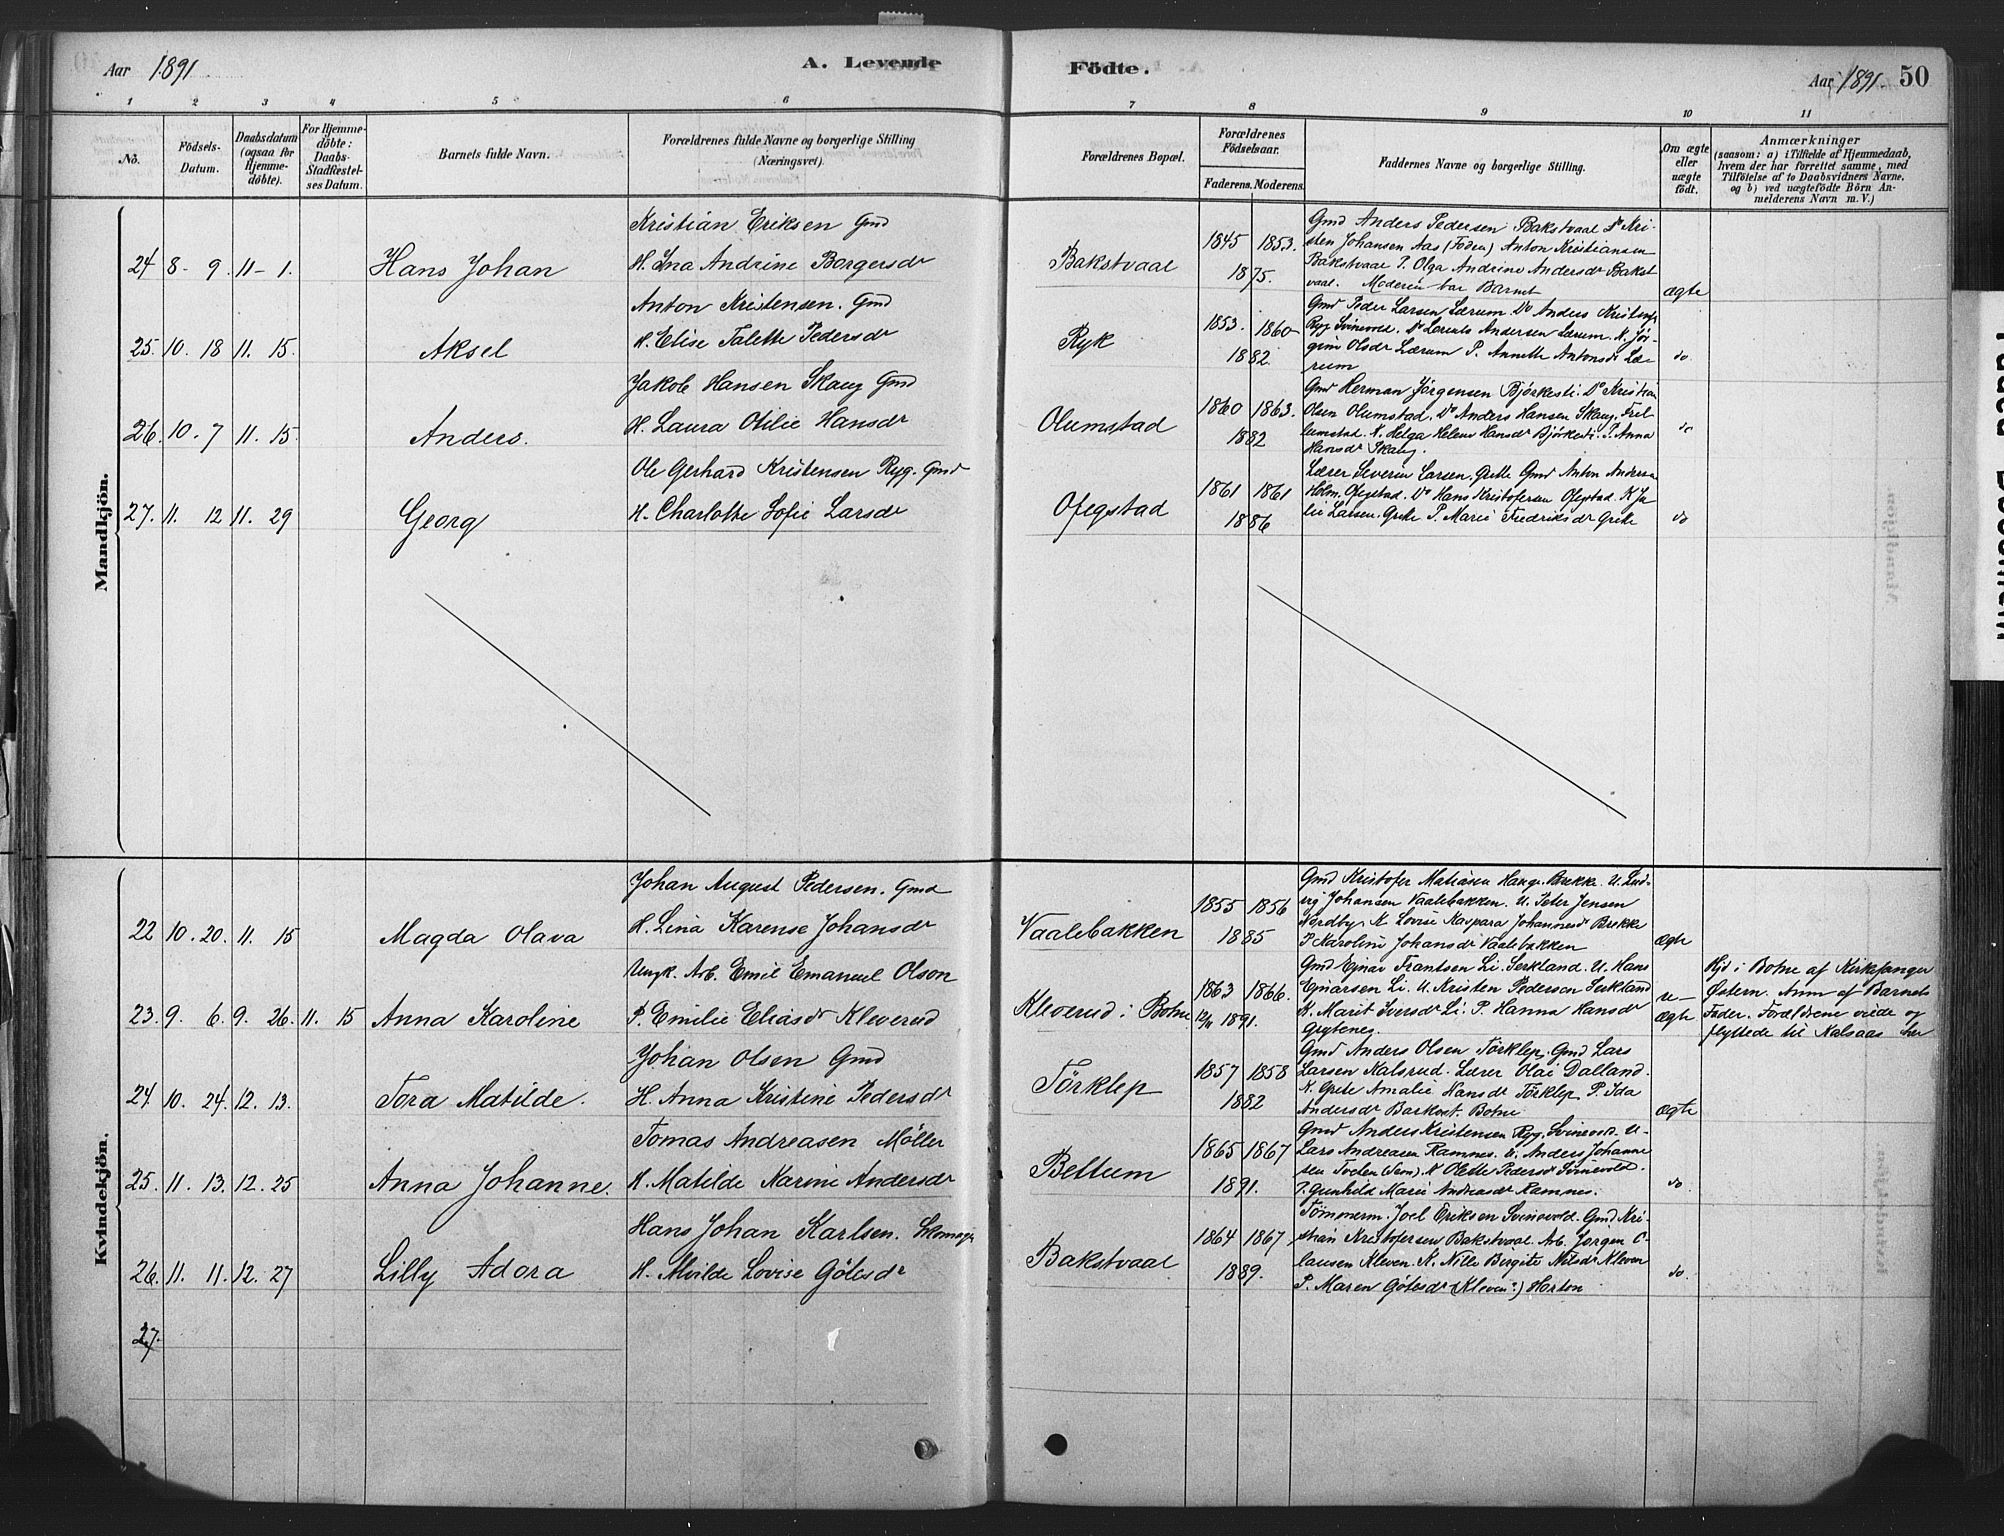 Aar 1891
A. Levende
Födte.
Aar 1891. 50
1 2 3 4 5 6 7 8 9 10 11
No.
Födsels-
Datum.
Daabsdatum
(ogsaa for
Hjemme-
döbte).
For Hjemme-
döbte:
Daabs-
Stadfæstel-
ses Datum.
Barnets fulde Navn.
Forældrenes fulde Navne og borgerlige Stilling
(Næringsvei).
Forældrenes Bopæl.
Forældrenes
Födselsaar.
Faderens. Moderens.
Faddernes Navne og borgerlige Stilling.
Om ægte
eller
uægte
födt.
Anmærkninger
(saasom: a) i Tilfælde af Hjemmedaab,
hvem der har forrettet samme, med
Tilföielse af to Daabsvidners Navne,
og b) ved uægtefödte Börn An-
melderens Navn m. V.)
Mandkjön.
Kristian Eriksen Gmd
24 8- 9. 11- 1. Hans Johan H. Ina Andrine Borgersdr
Bakstvaal 1845 1853. 1875.
Gmd Anders Pedersen Bakstvaal Do Kri-
sten Johansen Aas (Foden) Anton Kristiansen
Bakstvaal P. Olga Andrine Andersdr Bakst
vaal. Moderen bar Barnet
ægte
Anton Kristensen. Gmd
25. 10. 18 11. 15. Aksel H. Elise Talette Pedersdr
Ryk 1853. 1860 1882.
Gmd Peder Larsen Lærum. Do Anders Kristens.
Ryg Svinevold. Do Lorents Andersen Lærum. K. Jör-
gine Olsdr Lærum P. Annette Antonsdr Læ-
rum
do
Jakob Hansen Skaug Gmd
26. 10. 7 11. 15. Anders. H. Laura Otilie Hansdr
Olumstad 1860 1863. 1882
Gmd Herman Jörgensen Bjørkesti. Do Kristian
Olsen Olumstad. Do Anders Hansen Skaug.
lumstad. K. Helga Helene Hansdr Bjørkesti. P. Anna
Hansdr Skaug.
do
Ole Gerhard Kristensen Ryg. Gmd
27. 11. 12 11. 29 Georg H. Charlotte Sofie Larsdr
Ofegstad 1861 1861 1886
Lærer Severin Larsen. Grette Gmd Anton Anderse
Holm. Ofegstad. Do Hans Kristofersen Ofegstad. K Ju
lie Larsen. Grette P. Marie Fredriksdr Grette
do
Kvindekjön.
Johan August Pedersen. Gmd
22 10. 20. 11. 15 Magda Olava H. Lina Karense Johansdr
Vaalebakken 1855 1856 1885
Gmd Kristofer Matiasen Brekke. U. Lud-
vig Johansen Vaalebakken. U. Peter Jensen
Nordby. K Lovise Kaspara Johannesd Brekke
P Karoline Johansdr Vaalebakken
ægte
Ungk. Arb. Emil Emanuel Olson
23. 9. 6. 9. 26. 11. 15 Anna Karoline P. Emilie Eliasdr Kleverud
Kleverud i Botne 1863 1866. 12/11 1891.
Gmd Ejnar Frantsen Li. Serkland. U. Hans
Ejnarsen Li. U. Kristen Pederson Serkland
K. Marit Iversdr Li. P. Hanna Hansdr
Grytenes.
u-
ægte
Hjd i Botne af Kirkesanger
Østern. Anm af Barnets
Fader. Forældrene viede og
flyttede til Kalsaas her
Johan Olsen Gmd
24 10. 24. 12. 13. Tora Matilde. H. Anna Kristine Pedersdr
Törklep 1857 1858 1882
Gmd Anders Olsen Törklep. Gmd Lars
Larsen Kalsrud. Lærer Olai Dalland.
K. Grete Amalie Hansdr Törklep P. Ida
Andersdr Barkost. Botne
ægte
Tomas Andreasen Möller
25. 11. 13. 12. 25 Anna Johanne. H. Matilde Karine Andersdr
Bettum 1865 1867 1891.
Gmd Anders Kristensen Ryg, Svinevold. U-
Lars Andreasen Ramnes. U. Anders Johanne
sen (Sem). K Olette Pedersdr Svinevold.
P. Gunhild Marie Andreasdr Ramnes.
do.
Hans Johan Karlsen. Skomager
26. 11. 11. 12. 27 Lilly Adora H. Alvilde Lovise Götesdr
Bakstvaal 1864 1867 1889.
Tömmerm. Joel Eriksen Svinevold. Gmd Kri-
stian Kristofersen Bakstvaal. Arb. Jørgen C-
lausen Kleven. K. Nille Birgite Nilsdr Kleven
P. Maren Götesdr (Kleven:) Horton
do.
27.